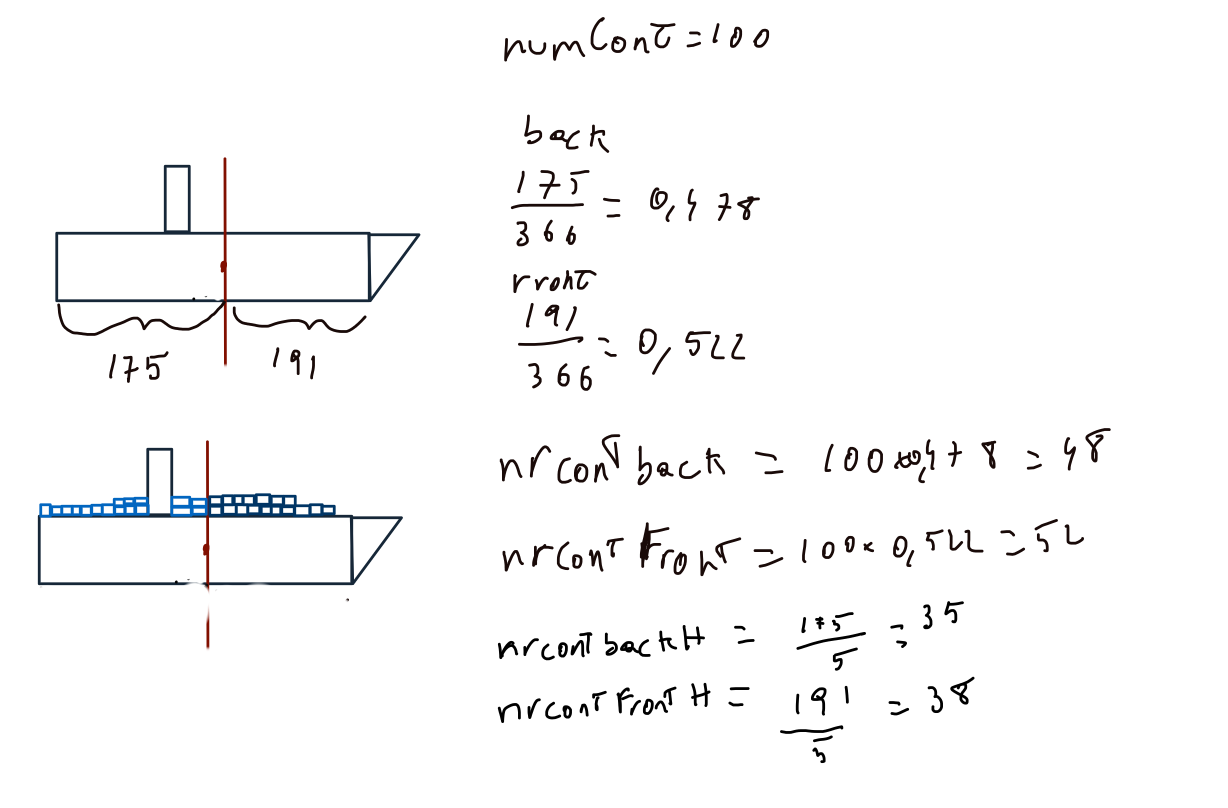 numCont = 100
back
175/366 = 0,478
front
191/366 = 0,522
175 191
nrcont back = 100×0,478 = 48
nrcont Front = 100× 0,522 = 52
nrcont back H = 175/5 = 35
nrcont Front H = 191/5 = 38